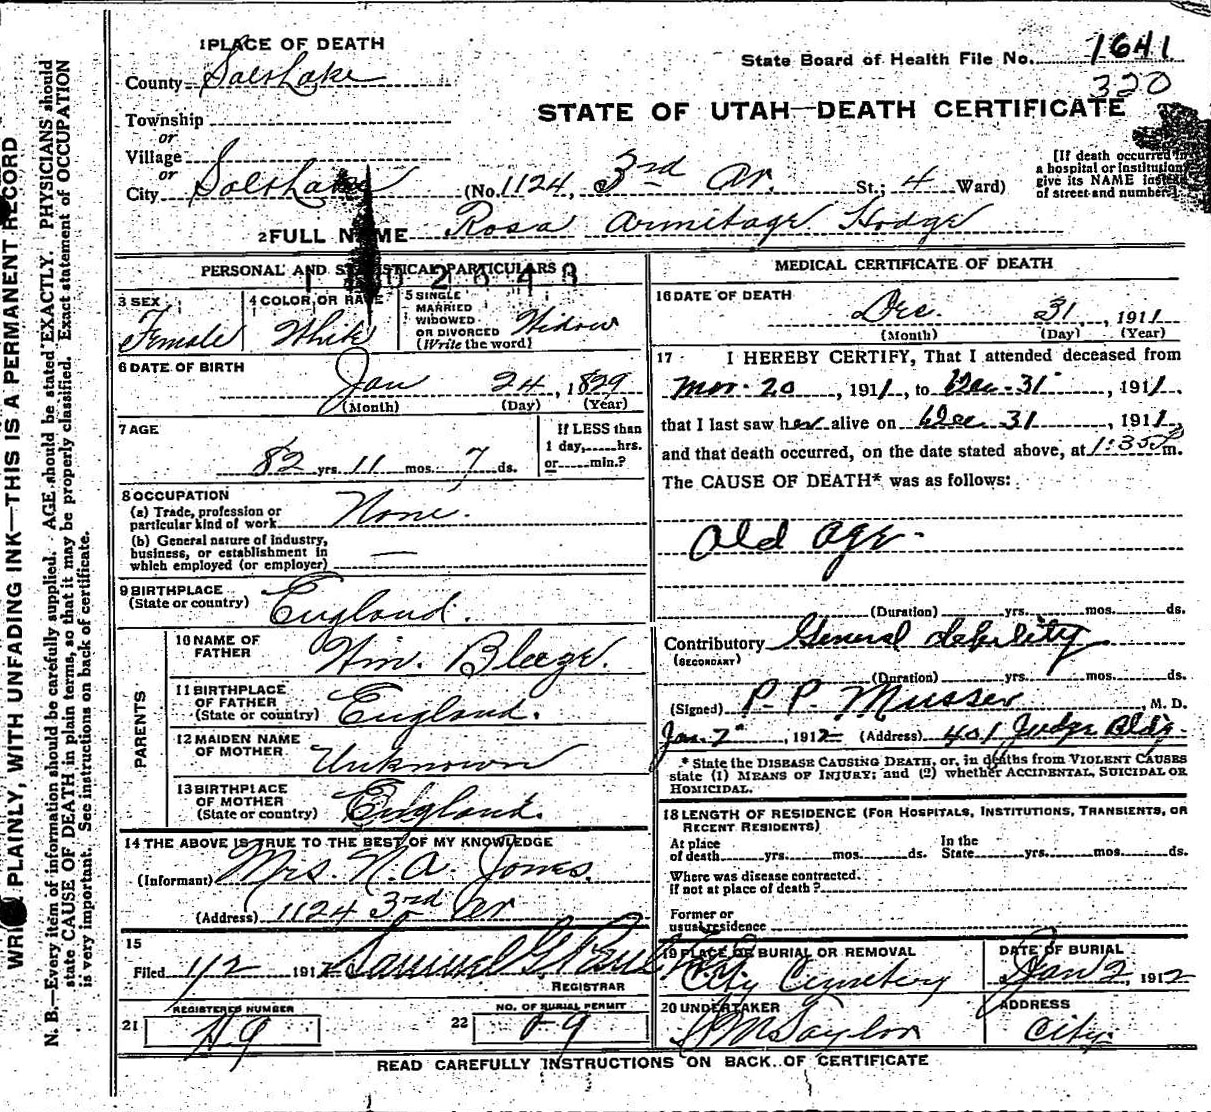 WRITE PLAINLY, WITH UNFADING INK—THIS IS A PERMANENT RECORD
N. B.—Every item of information should be carefully supplied. AGE should be stated EXACTLY. PHYSICIANS should
state CAUSE OF DEATH in plain terms, so that it may be properly classified. Exact statement of OCCUPATION
is very important. See instructions on back of certificate.
1 PLACE OF DEATH
County Salt Lake
Township
or
Village
or
City Salt Lake
State Board of Health File No. 1641
320
STATE OF UTAH—DEATH CERTIFICATE
(No. 1124, 3rd Av. St.; 4 Ward)
[If death occurred in
a hospital or institution
give its NAME instead
of street and number.]
2 FULL NAME Rosa Armitage Hodge
PERSONAL AND STATISTICAL PARTICULARS
3 SEX
Female
4 COLOR OR RACE
White
5 SINGLE
MARRIED
WIDOWED
OR DIVORCED
(Write the word)
Widow
6 DATE OF BIRTH
Jan 24, 1829
(Month) (Day) (Year)
7 AGE
82 yrs. 11 mos. 7 ds.
If LESS than
1 day,......hrs.
or......min.?
8 OCCUPATION
(a) Trade, profession or
particular kind of work None.
(b) General nature of industry,
business, or establishment in
which employed (or employer) —
9 BIRTHPLACE
(State or country) England.
PARENTS
10 NAME OF
FATHER Wm. Bleeze.
11 BIRTHPLACE
OF FATHER
(State or country) England.
12 MAIDEN NAME
OF MOTHER Unknown
13 BIRTHPLACE
OF MOTHER
(State or country) England.
14 THE ABOVE IS TRUE TO THE BEST OF MY KNOWLEDGE
(Informant) Mrs. N. A. Jones.
(Address) 1124 3rd Av
15
Filed 1/2 1912 Samuel G.
REGISTRAR
REGISTERED NUMBER
21
NO. OF BURIAL PERMIT
22
MEDICAL CERTIFICATE OF DEATH
16 DATE OF DEATH
Dec. 31, 1911
(Month) (Day) (Year)
17 I HEREBY CERTIFY, That I attended deceased from
Mar. 20, 1911, to Dec. 31, 1911,
that I last saw her alive on Dec 31, 1911,
and that death occurred, on the date stated above, at 1:35 P m.
The CAUSE OF DEATH* was as follows:
Old age.
(Duration) yrs. mos. ds.
Contributory General debility
(SECONDARY)
(Duration) yrs. mos. ds.
(Signed) P. P. Musser, M. D.
Jan. 2, 1912 (Address) 401 Judge Bldg.
* State the DISEASE CAUSING DEATH, or, in deaths from VIOLENT CAUSES
state (1) MEANS OF INJURY; and (2) whether ACCIDENTAL, SUICIDAL OR
HOMICIDAL.
18 LENGTH OF RESIDENCE (FOR HOSPITALS, INSTITUTIONS, TRANSIENTS, OR
RECENT RESIDENTS)
At place
of death yrs. mos. ds.
In the
State yrs. mos. ds.
Where was disease contracted.
if not at place of death?
Former or
usual residence
19 PLACE OF BURIAL OR REMOVAL
City Cemetery
DATE OF BURIAL
Jan 2, 1912
20 UNDERTAKER
S M Taylor
ADDRESS
City
READ CAREFULLY INSTRUCTIONS ON BACK OF CERTIFICATE